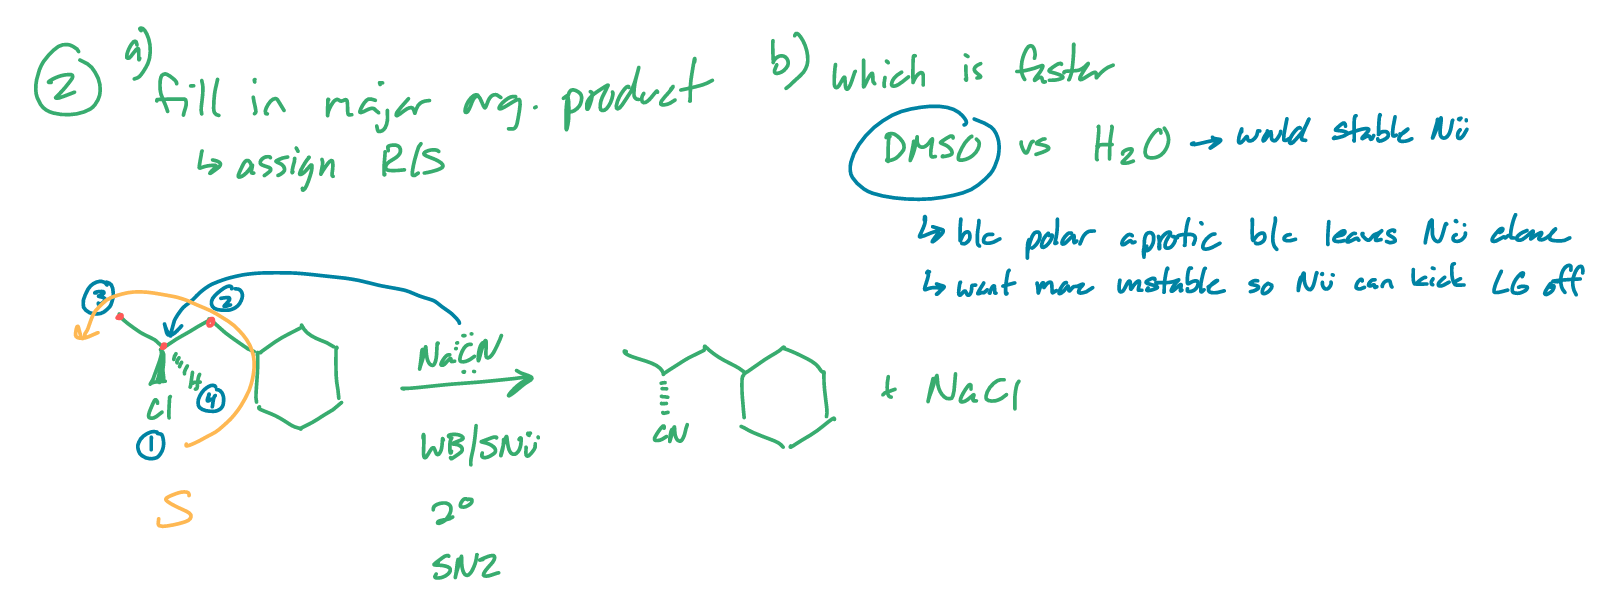 2 a) fill in major org. product
↳ assign R/S
b) which is faster
DMSO vs H2O → would stable Nü
↳ b/c polar aprotic b/c leaves Nü alone
↳ want more unstable so Nü can kick LG off
3
2
H
4
Cl
1
S
NaCN
WB/SNü
2°
SN2
CN
+ NaCl